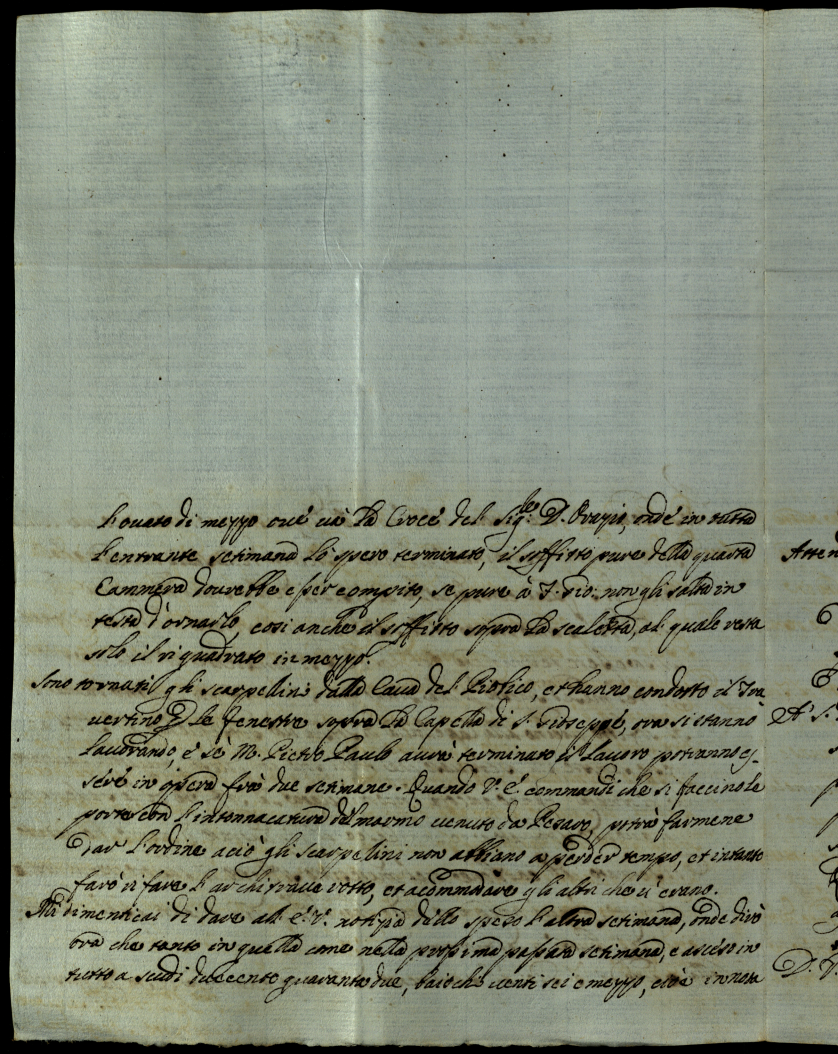 l'ouato di mezzo oue uà la Croce del Sig.re D. Orazio, onde in tutta
l'entrante setimana lo spero terminato, il soffitto pure della quarta
Cammera dourebbe esser compito, se pure à F. Gio: non gli salta in
testa d'ornarlo, cosi anche il soffitto sopra la scaletta, al quale resta
solo il riquadrato in mezzo.
Sono tornati gli scarpellini dalla Caua del Piobico, et hanno condotto il Tra
uertino per le fenestre sopra la Capella di S. Gioseppe, ora si stanno
lauorando, e se M. Pietro Paulo aurà terminato il lauoro potranno es-
sere in opera frà due setimane. Quando V. E. commandi che si faccino le
porte con l'intonnacatura del marmo uenuto da Pesaro, potrà farmene
dar l'ordine aciò gli scarpelini non abbiano a perder tempo, et intanto
farò rifare l'architraue rotto, et acommodare gli altri che ci erano.
Mi dimenticai di dare all'E. V. notizia dello speso l'altra setimana, onde dirò
ora che tanto in quella come nella prossima passata setimana, è asceso in
tutto a scudi ducento quaranta due, baiochi uenti sei e mezzo, cioè in nota
Atten
A S.
D.